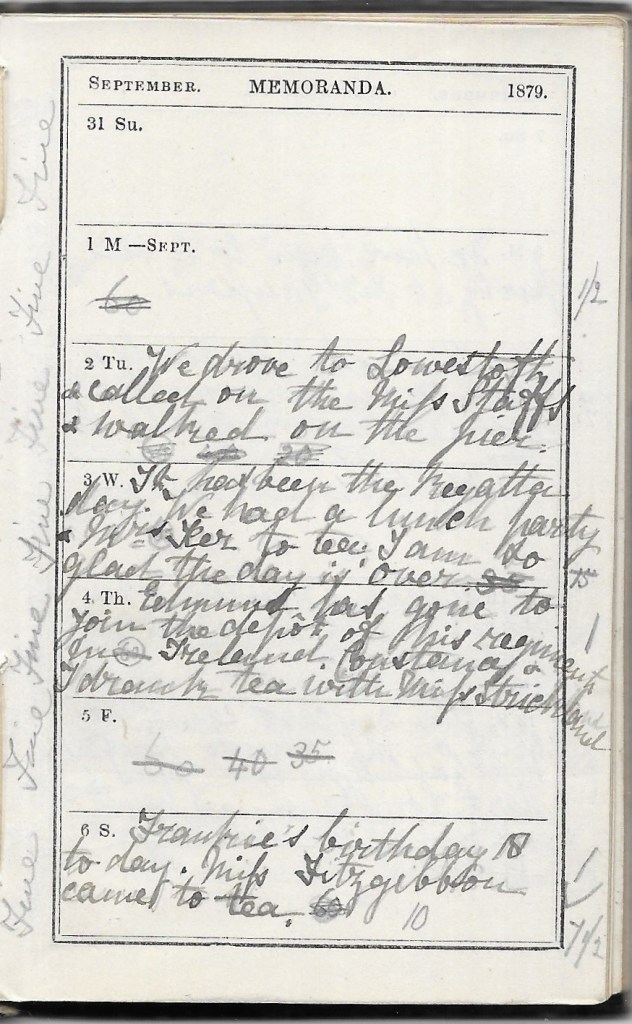 SEPTEMBER. MEMORANDA. 1879.
31 Su.
Fine
1 M —SEPT.
60
1/2
Fine
2 Tu. We drove to Lowestoft
& called on the Miss Staffs
& walked on the pier.
20
Fine
3 W. It has been the Regatta
day. We had a lunch party
& Mrs Ker to tea I am so
glad the day is over. 35
15
Fine
4 Th. Edmund has gone to
join the depôt of his regiment
In 60 Ireland Constance &
I drank tea with Miss Strickland
1
Fine
5 F.
60 40 35
Fine
6 S. Frankie's birthday 18
to day. Miss Fitzgibbon
came to tea. 60
10
1
7 1/2
Fine